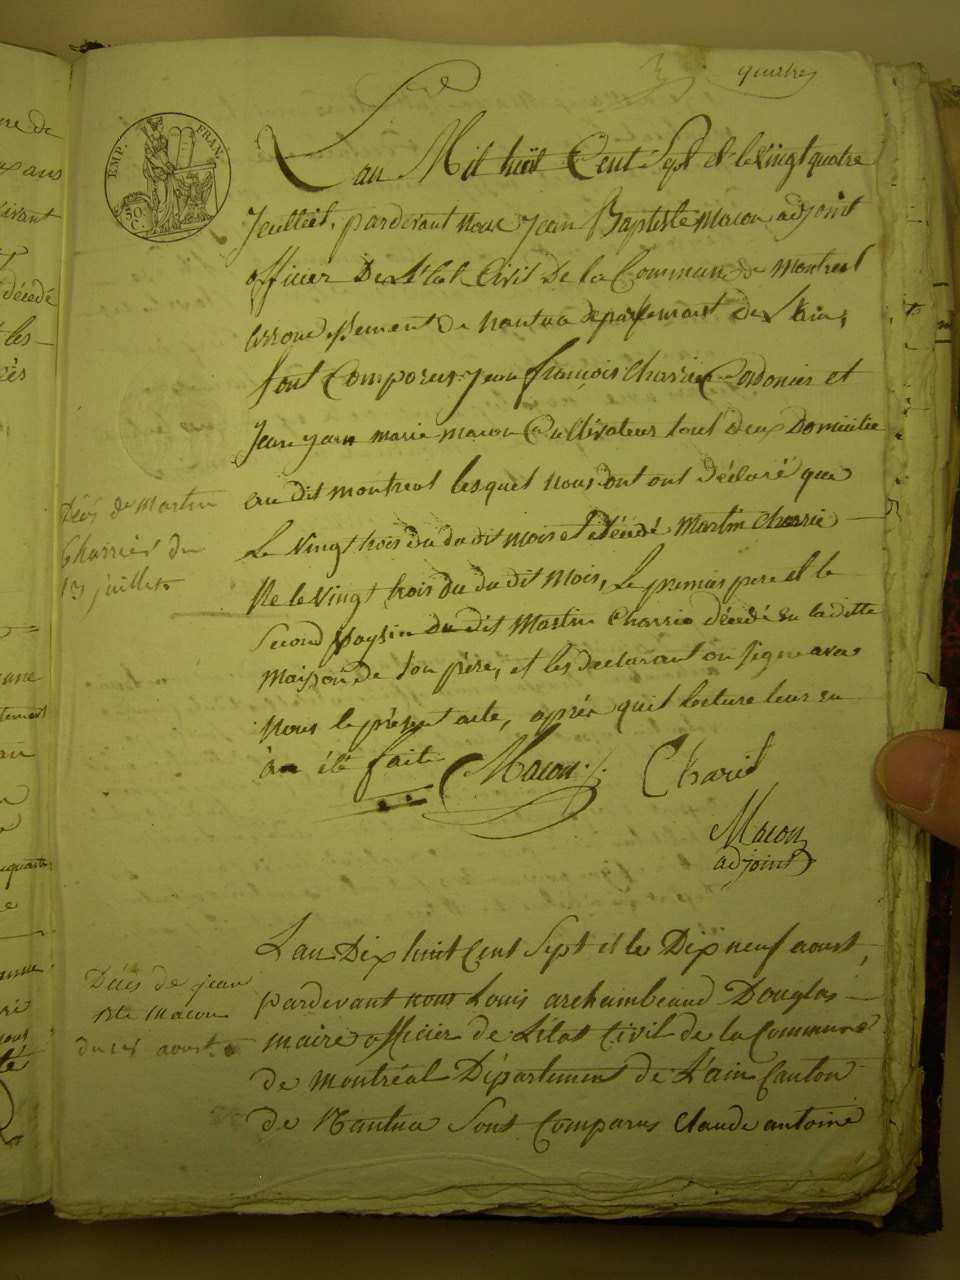 quatre
EMP. FRAN.
50 C.
L'an Mil huit Cent Sept et le vingt quatre
Jeuillet, pardevant nous Jean Baptiste Macon adjoint
officier De L'Etat Civil De la Commune de Montreal
arrondissement de nantua departement De L'ain,
sont Comporus jean françois charrier Cordonier et
Jean marie macon Cultivateur tout deux Domicilie
au dit montreal lesquel nous ont ont déclaré que
Le vingt trois du du dit mois est décédé Martin charrie
Ne le vingt trois du du dit mois, Le premier pere et le
second voysin du dit Martin Charrie décédé en la ditte
maison de son père, et les declarant on signe avec
nous le présent acte, après quil lecture leur en
a été faite
Décès de Martin
Charrier du
23 juillet
Macon
Charié
Macon
adjoint
Lan Dix huit Cent Sept et le Dix neuf aoust,
pardevant nous Louis archambeaud Douglas
maire officier de L'état Civil de la Commune
de Montréal Département de L'ain Canton
de Nantua Sont Comparus Claude antoine
Décès de jean
Bte Macon
du 18 aoust